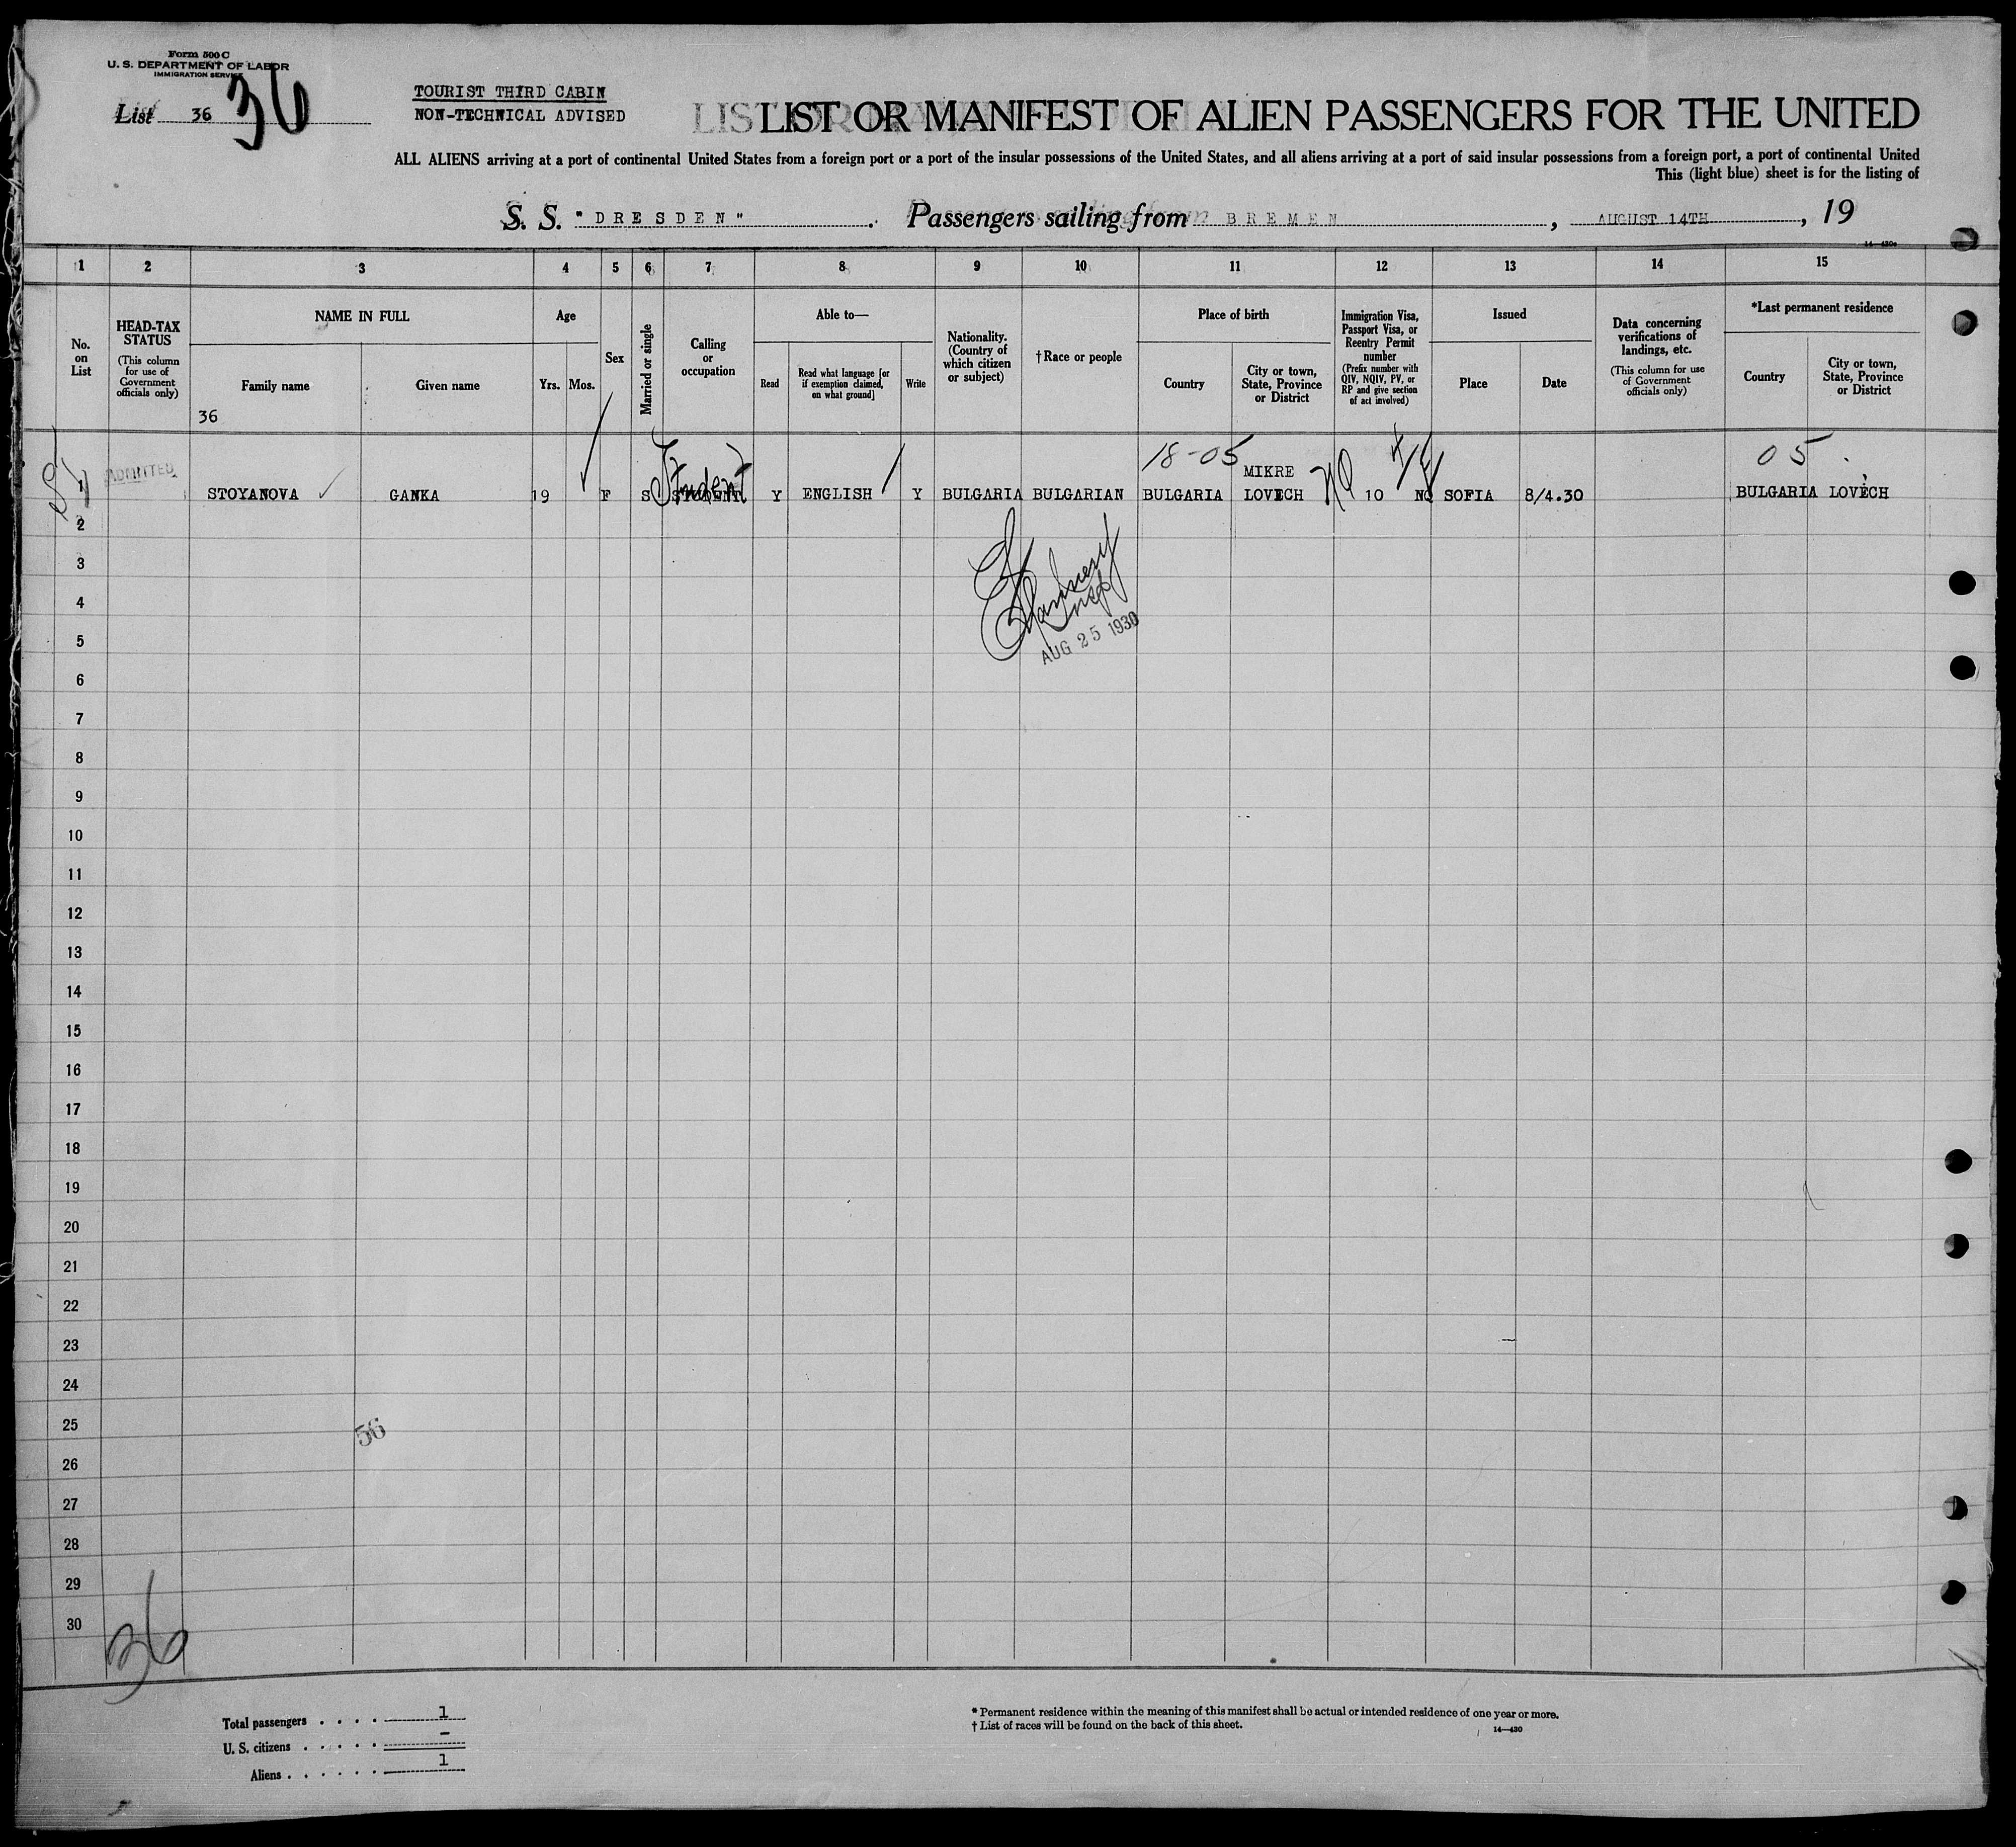 Form 500 C
U. S. DEPARTMENT OF LABOR
IMMIGRATION SERVICE
List 36 36
TOURIST THIRD CABIN
NON-TECHNICAL ADVISED
LIST OR MANIFEST OF ALIEN PASSENGERS FOR THE UNITED
ALL ALIENS arriving at a port of continental United States from a foreign port or a port of the insular possessions of the United States, and all aliens arriving at a port of said insular possessions from a foreign port, a port of continental United
This (light blue) sheet is for the listing of
S. S. "DRESDEN". Passengers sailing from BREMEN, AUGUST 14TH, 19
1 2 3 4 5 6 7 8 9 10 11 12 13 14 15
No. on List
HEAD-TAX STATUS
(This column for use of Government officials only)
NAME IN FULL
Family name
Given name
36
Age
Yrs. Mos.
Sex
Married or single
Calling or occupation
Able to—
Read
Read what language [or if exemption claimed, on what ground]
Write
Nationality. (Country of which citizen or subject)
†Race or people
Place of birth
Country
City or town, State, Province or District
Immigration Visa, Passport Visa, or Reentry Permit number
(Prefix number with QIV, NQIV, PV, or RP and give section of act involved)
Issued
Place
Date
Data concerning verifications of landings, etc.
(This column for use of Government officials only)
*Last permanent residence
Country
City or town, State, Province or District
18-05
05
ADMITTED
Student
MIKRE
1 STOYANOVA GANKA 19 F S STUDENT Y ENGLISH Y BULGARIA BULGARIAN BULGARIA LOVECH 10 NQ SOFIA 8/4.30 BULGARIA LOVECH
2
3
4
5
AUG 25 1930
6
7
8
9
10
11
12
13
14
15
16
17
18
19
20
21
22
23
24
25
56
26
27
28
29
30
36
Total passengers . . . . 1
U. S. citizens . . . . . –
Aliens . . . . . . 1
* Permanent residence within the meaning of this manifest shall be actual or intended residence of one year or more.
† List of races will be found on the back of this sheet.
14—430